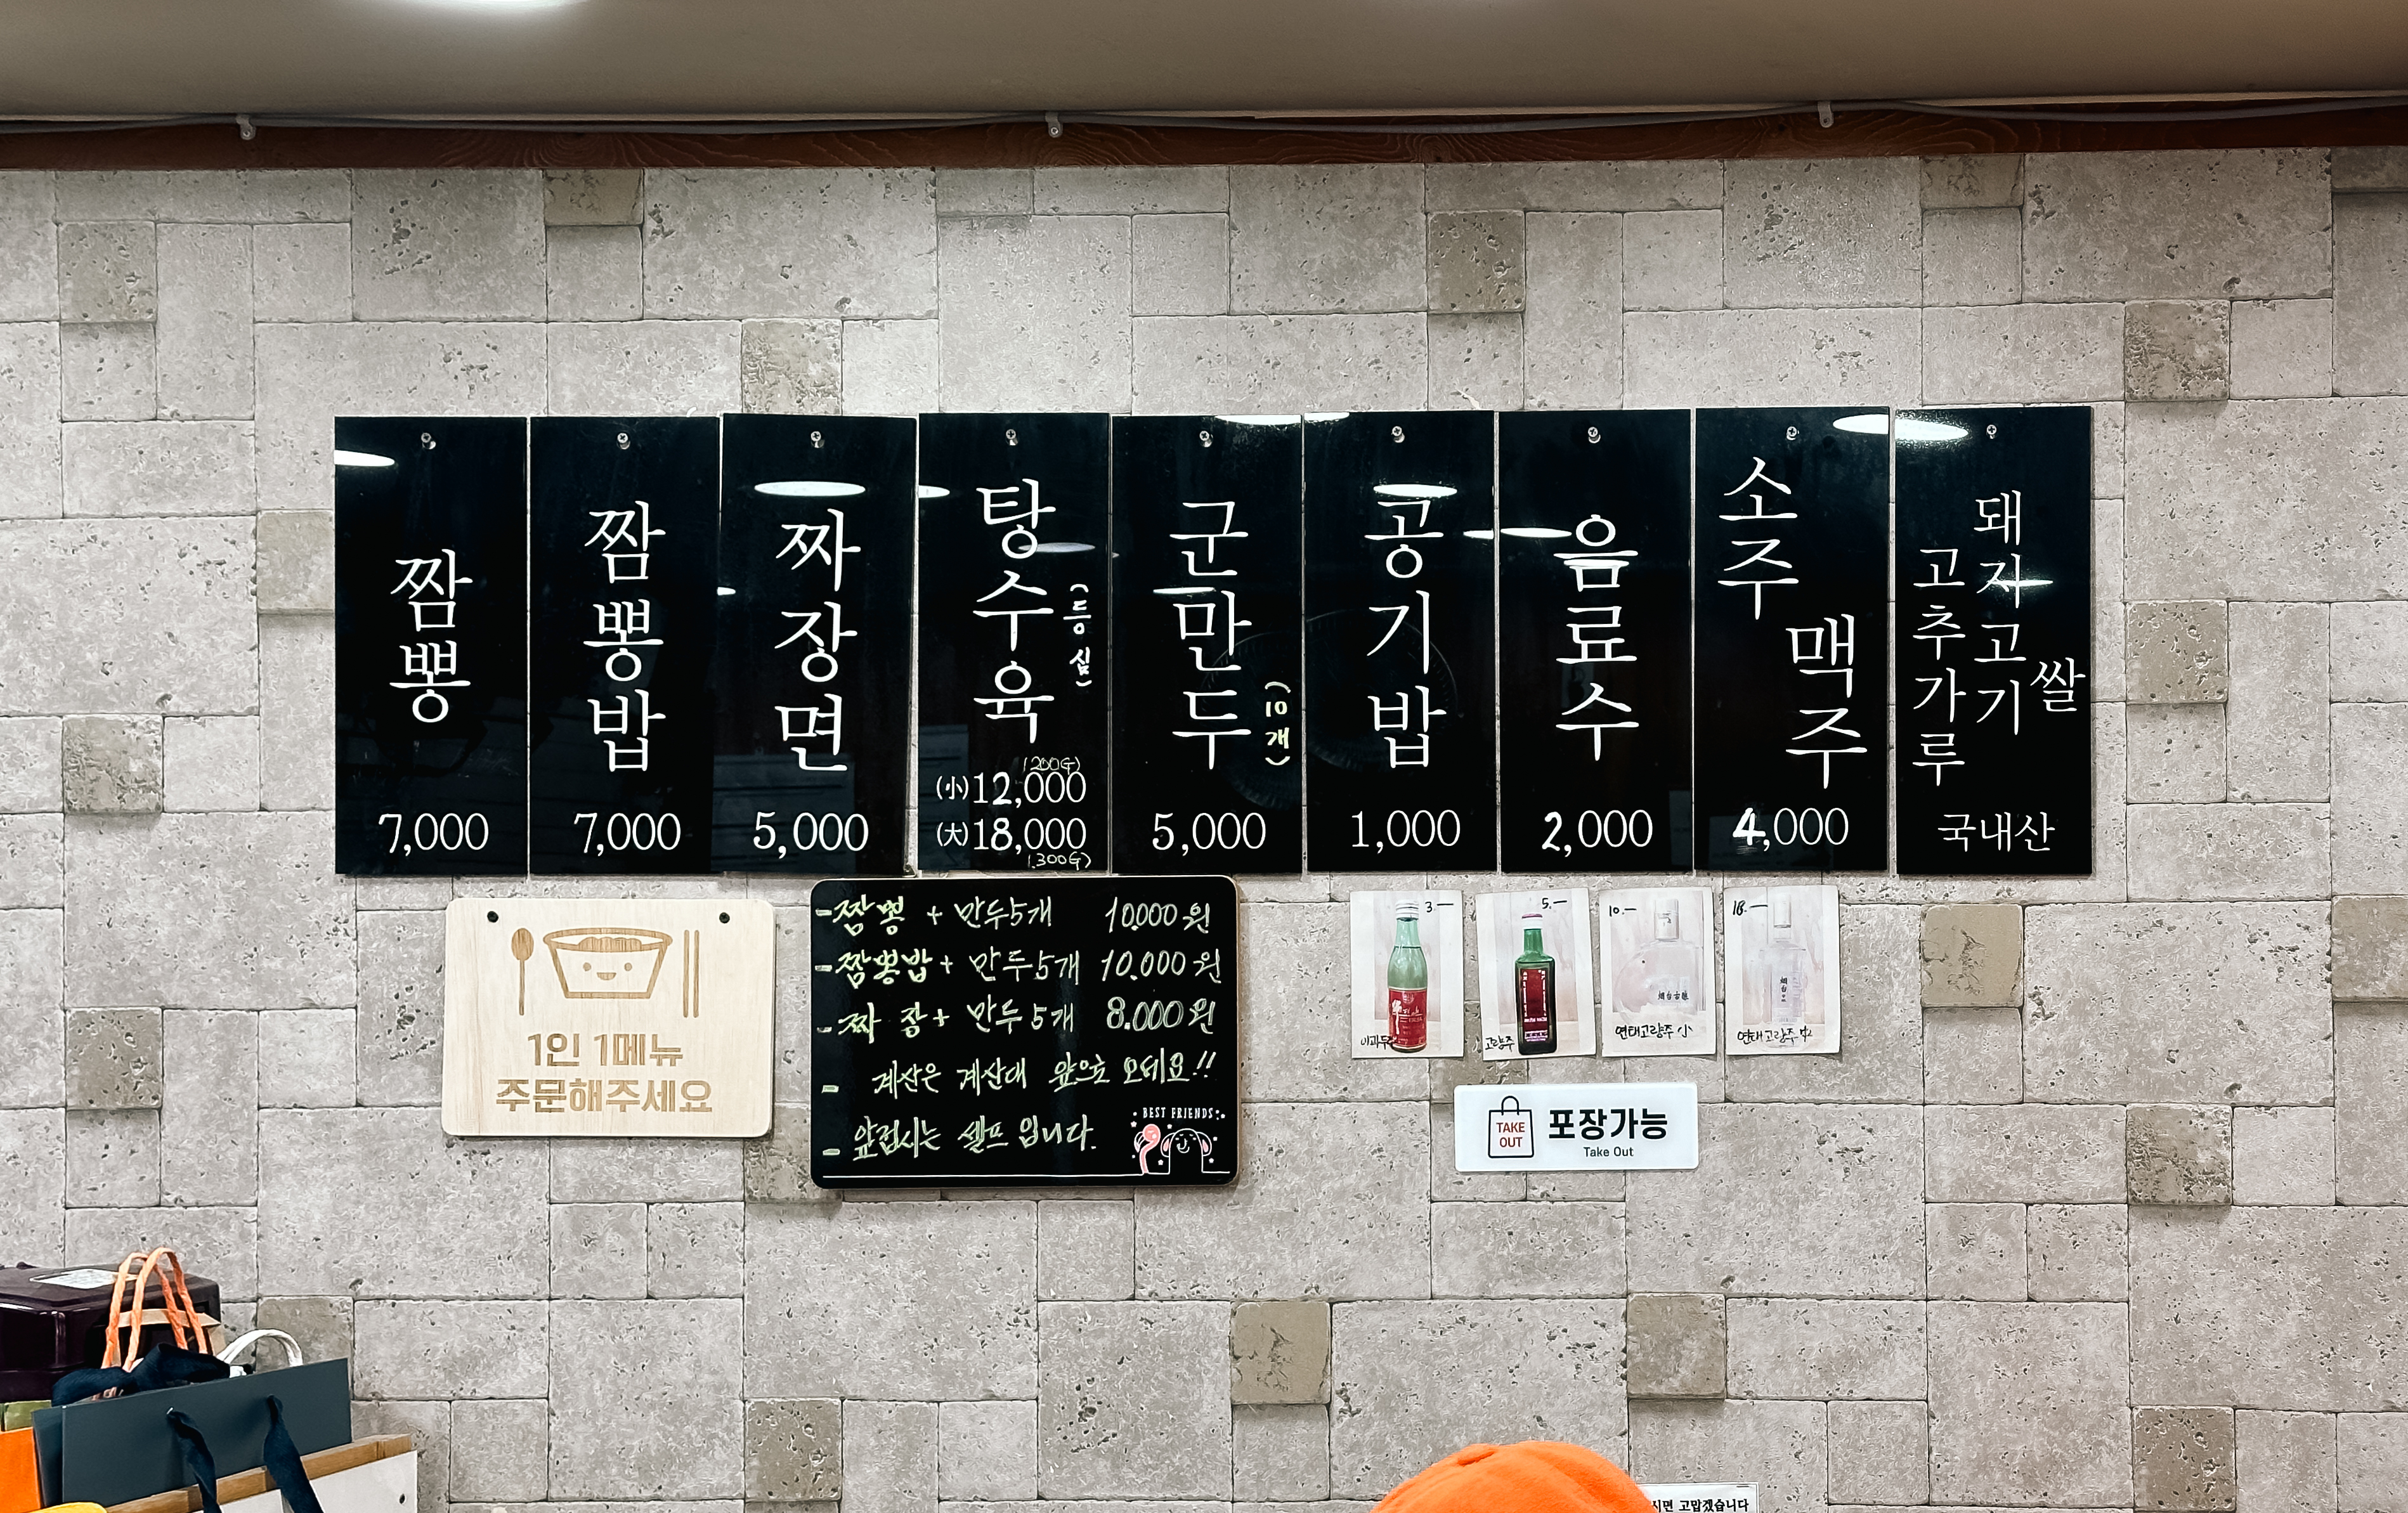 짬뽕
7,000
짬뽕밥
7,000
짜장면
5,000
탕수육
(등심)
(200G)
(小)12,000
(大)18,000
(300G)
군만두
(10개)
5,000
공기밥
1,000
음료수
2,000
소주
맥주
4,000
쌀
돼지고기
고추가루
국내산
1인 1메뉴
주문해주세요
-짬뽕 + 만두5개 10.000원
-짬뽕밥+ 만두5개 10.000원
-짜장+ 만두5개 8.000원
- 계산은 계산대 앞으로 오세요!!
- 앞접시는 셀프 입니다.
BEST FRIENDS
3.—
이과두주
5.—
고량주
10.—
연태고량주 小
18.—
연태고량주 中
TAKE
OUT
포장가능
Take Out
시면 고맙겠습니다